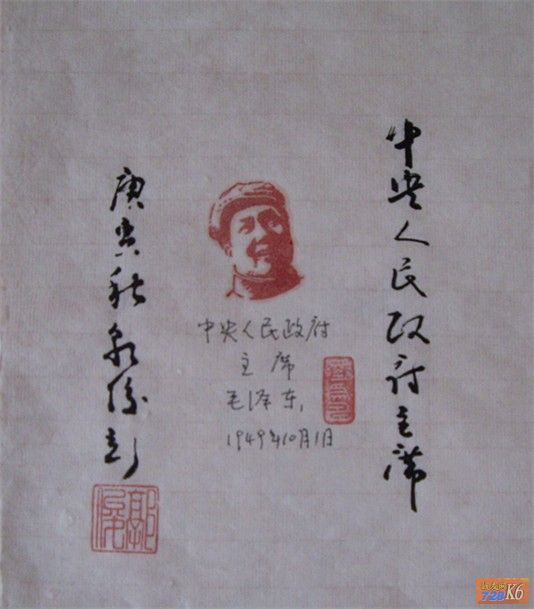 中央人民政府主席
中央人民政府
主席
毛泽东,
1949年10月1日
庚寅秋
728 K6